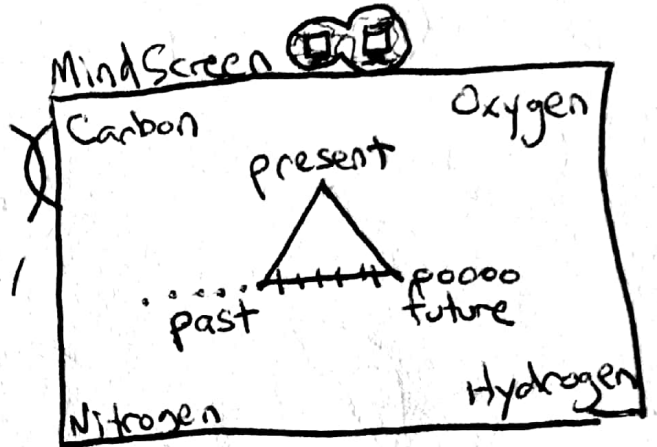 MindScreen
Carbon
Oxygen
present
past
future
Nitrogen
Hydrogen